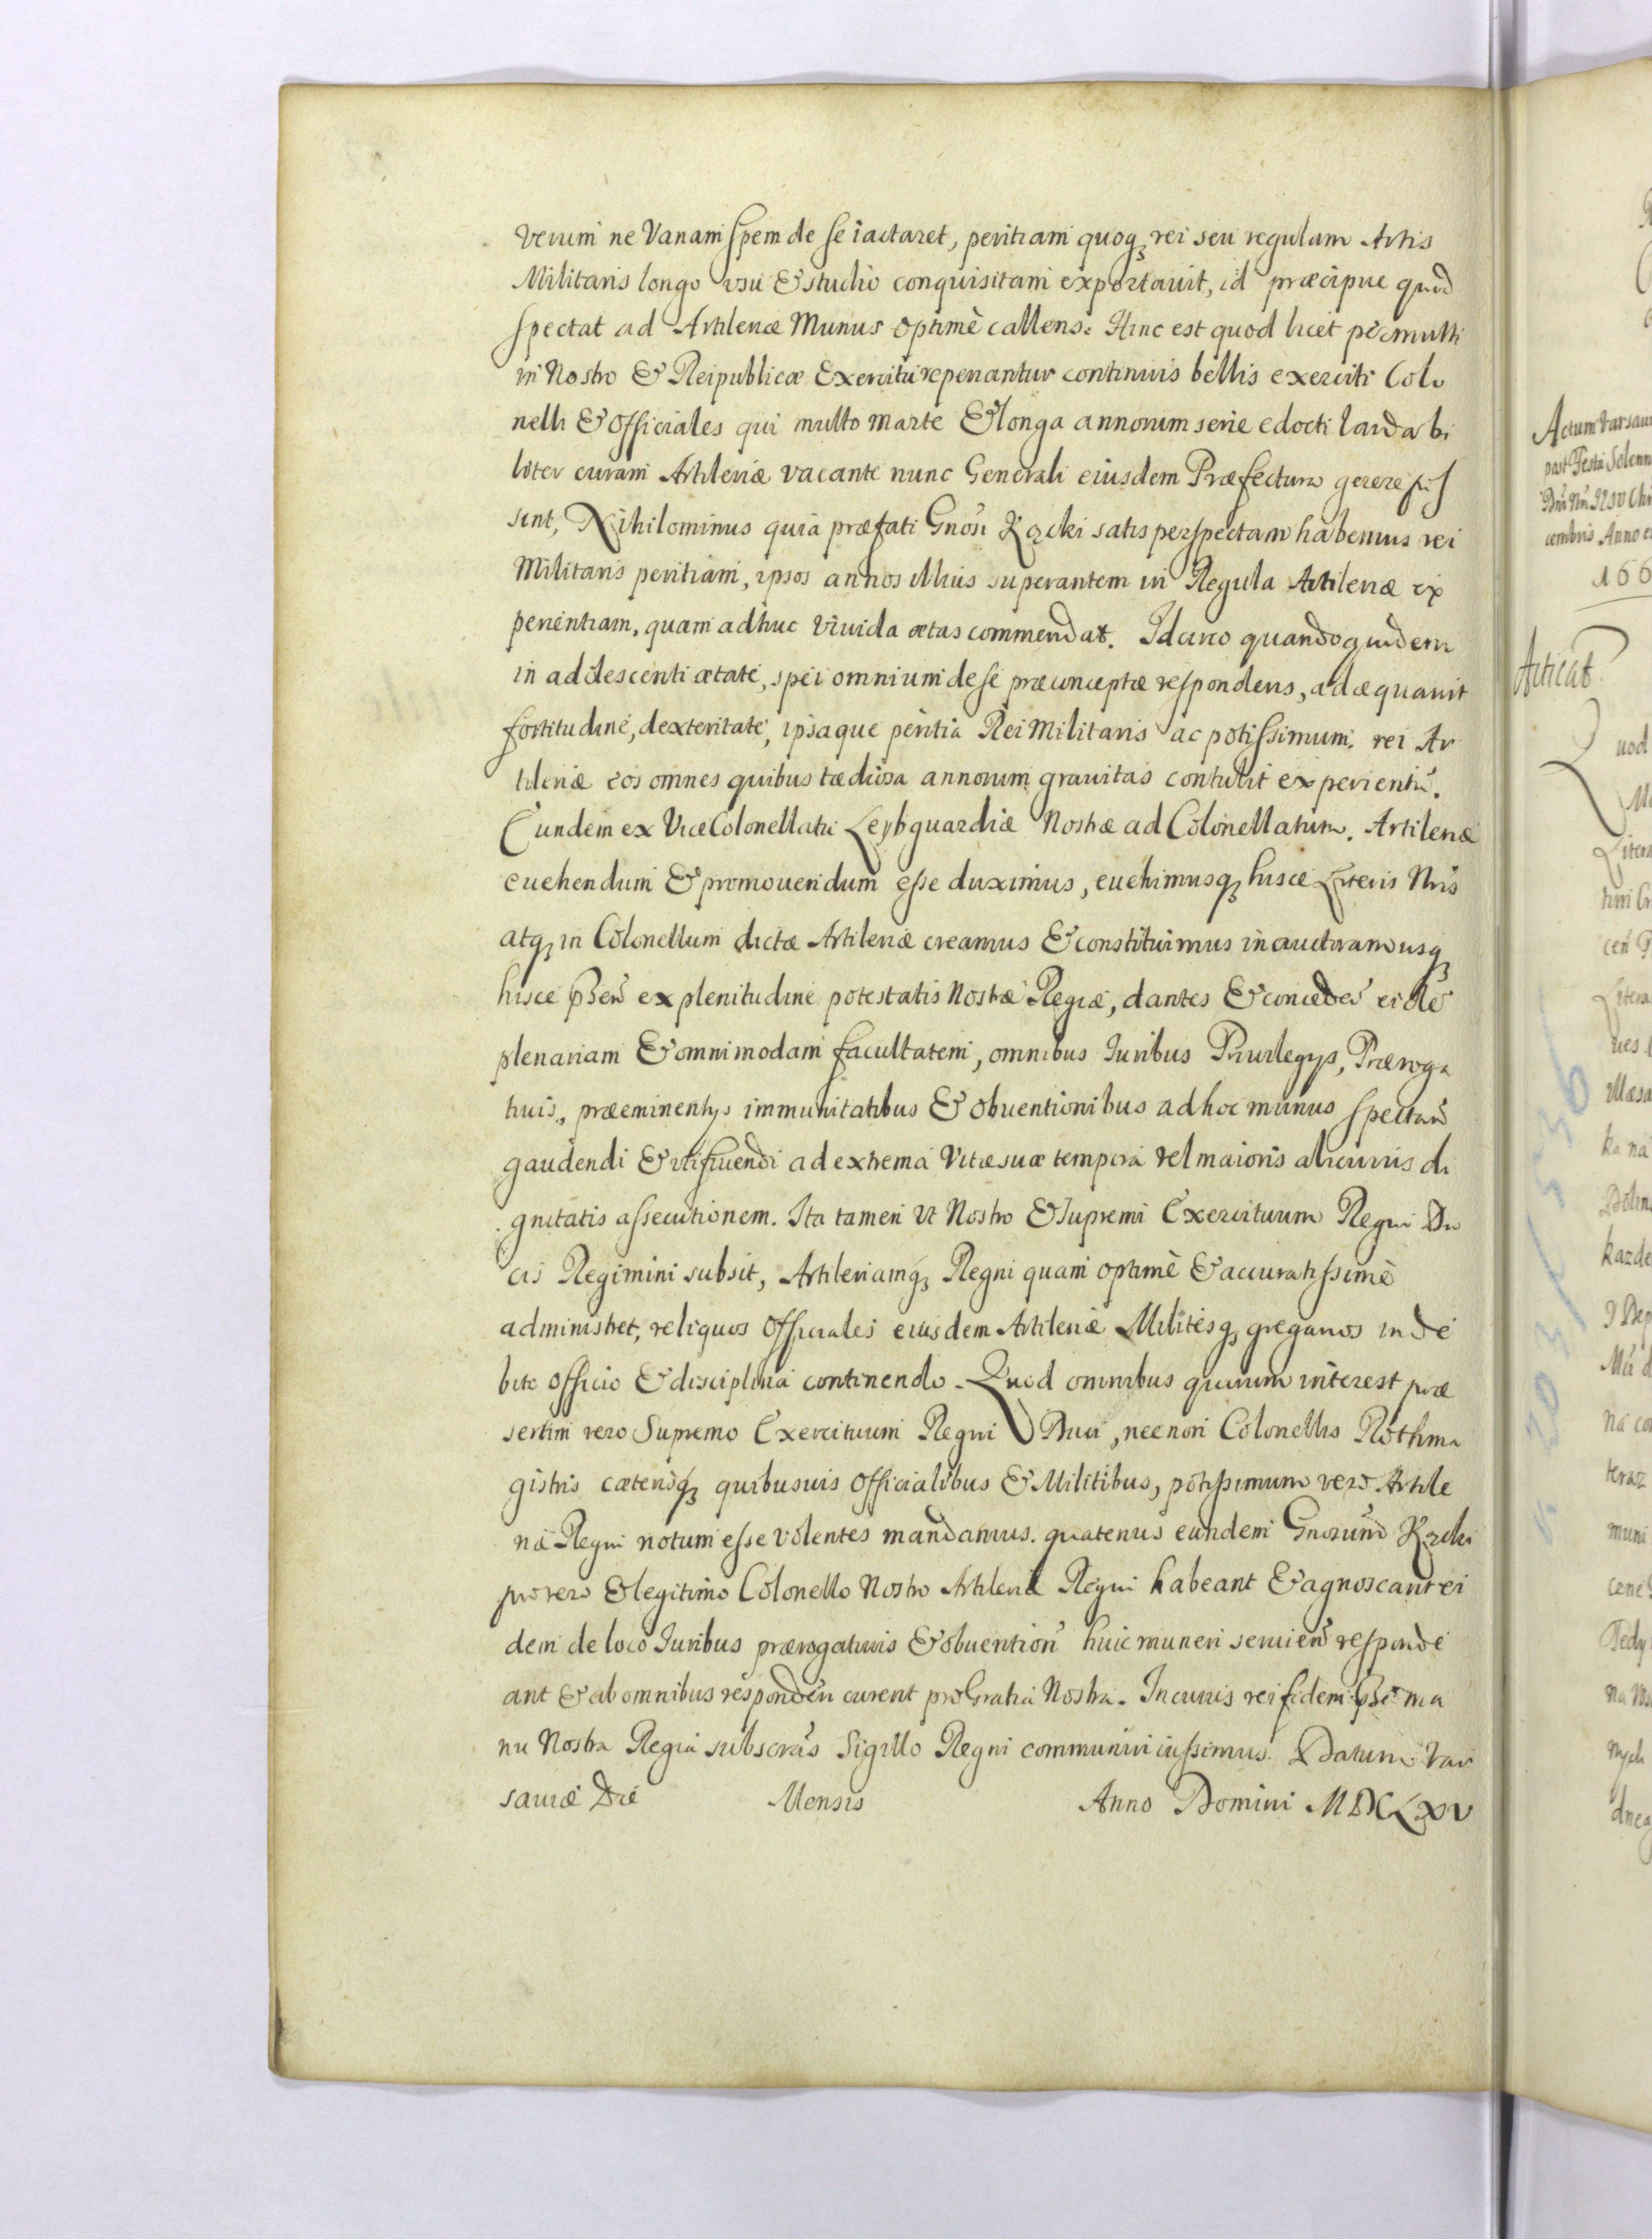 verum ne Vanam spem de se iactaret, peritiam quoq rei seu regulam Artis
Militaris longo usu & studio conquisitam exportauit, id præcipue quod
spectat ad Artileriæ Munus optimè callens. Hinc est quod licet permulti
in Nostro & Reipublicæ Exercitu reperiantur continuis bellis exerciti Colo
nelli & Officiales qui multo marte & longa annorum serie edocti laudabi
liter curam Artileriæ vacante nunc Generali eiusdem Præfectura gerere pos
sint, Nihilominus quia præfati Gnosi Kącki satis perspectam habemus rei
Militaris peritiam, ipsos annos illius superantem in Regula Artileriæ ex
perientiam, quam adhuc viuida ætas commendat. Idcirco quandoquidem
in addlescenti ætate, spei omnium de se præconceptæ respondens, adæquauit
fortitudine, dexteritate, ipsaque peritia Rei Militaris ac potissimum rei Ar
tileriæ eos omnes quibus tædiosa annorum grauitas contulit experientiā.
Eundem ex ViceColonellatu Leybguardiæ Nostræ ad Colonellatum Artileriæ
euehendum & promouendum esse duximus, euehimusq hisce Literis Nris
atq in Colonellum dictæ Artileriæ creamus & constituimus inaucturamusq
hisce pSen ex plenitudine potestatis Nostræ Regiæ, dantes & conceden eide
plenariam & omnimodam facultatem, omnibus Iuribus Priuilegys, Præroga
tiuis, præeminentys immunitatibus & obuentionibus ad hoc munus spectan
gaudendi & utifruendi ad extrema Vitæ suæ tempora vel maioris alicuius di
gnitatis assecutionem. Ita tamen ut Nostro & Supremi Exercituum Regni Du
cis Regimini subsit, Artileriamq Regni quam optimè & accuratissimè
administret, reliquos Officiales eiusdem Artileriæ Militesq gregarios in de
bito officio & disciplina continendo. Quod omnibus quorum interest præ
sertim vero Supremo Exercituum Regni Duci, necnon Colonellis Rothma
gistris cæterisq quibusuis Officialibus & Militibus, potissimum vero Artile
riæ Regni notum esse volentes mandamus. quatenus eundem Gnosum Kącki
pro vero & legitimo Colonello Nostro Artileriæ Regni habeant & agnoscant ei
dem de loco Iuribus prærogatiuis & obuention huic muneri seruien responde
ant & ab omnibus responderi curent pro Gratia Nostra. In cuius rei fidem pSe ma
nu Nostra Regia subscras Sigillo Regni communiri iussimus. Datum Var
sauiæ Die Mensis Anno Domini MDCLXV
Actum Varsau
post Festa Solenn
cembris Anno
166
Articat
uod
Litera
Masa
ka na
kazde
na co
teraz
muni